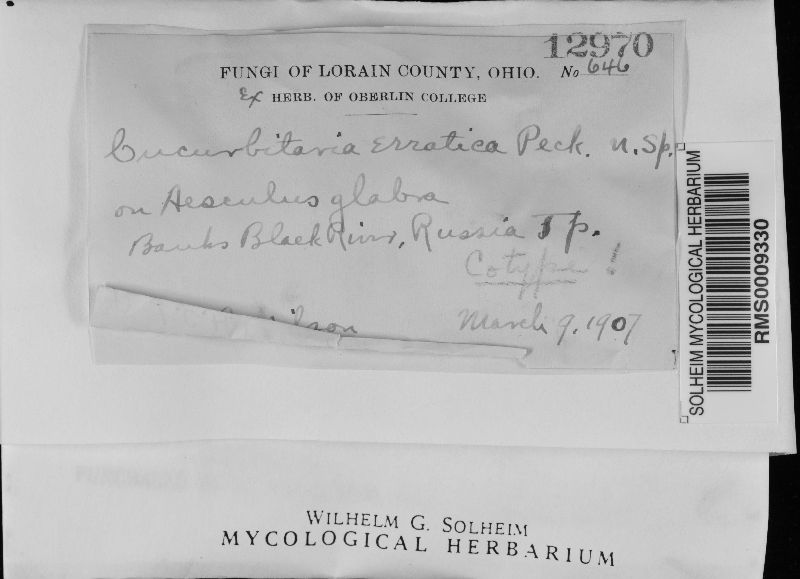 12970
FUNGI OF LORAIN COUNTY, OHIO. No 646
Ex HERB. OF OBERLIN COLLEGE
Cucurbitaria erratica Peck. n. sp.
on Aesculus glabra
Banks Black River, Russia Tp.
Cotype!
March 9, 1907
SOLHEIM MYCOLOGICAL HERBARIUM
RMS0009330
WILHELM G. SOLHEIM
MYCOLOGICAL HERBARIUM